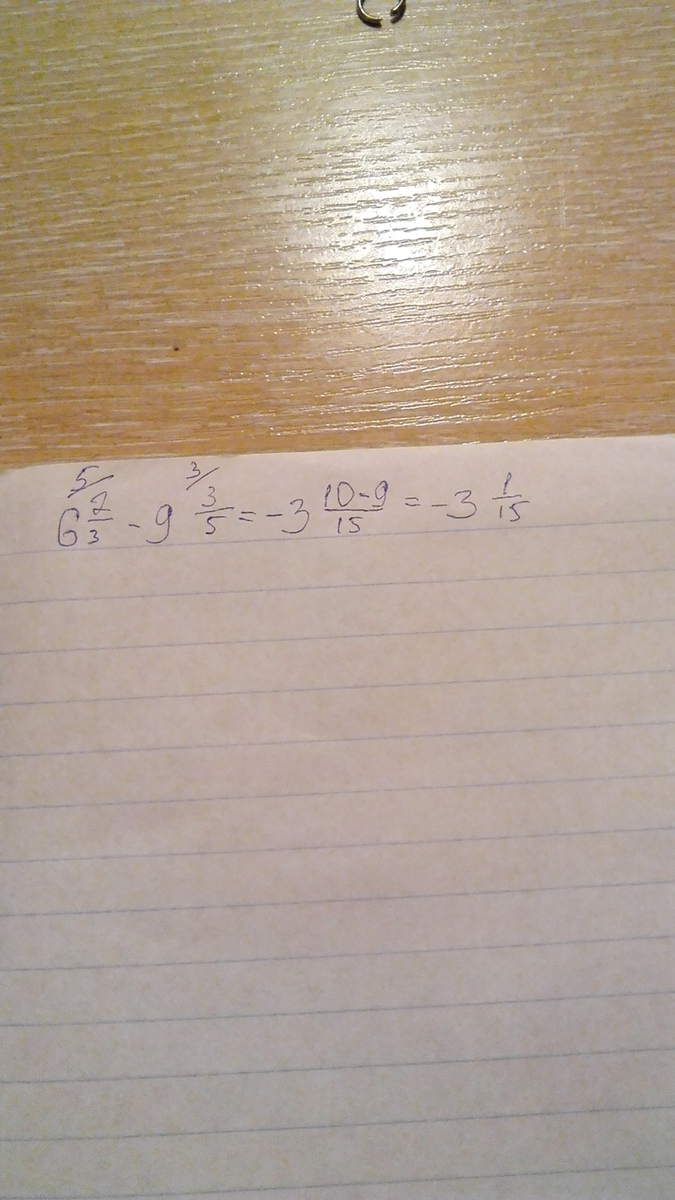 5/ 3/
6 2/3 - 9 3/5 = -3 10-9/15 = -3 1/15